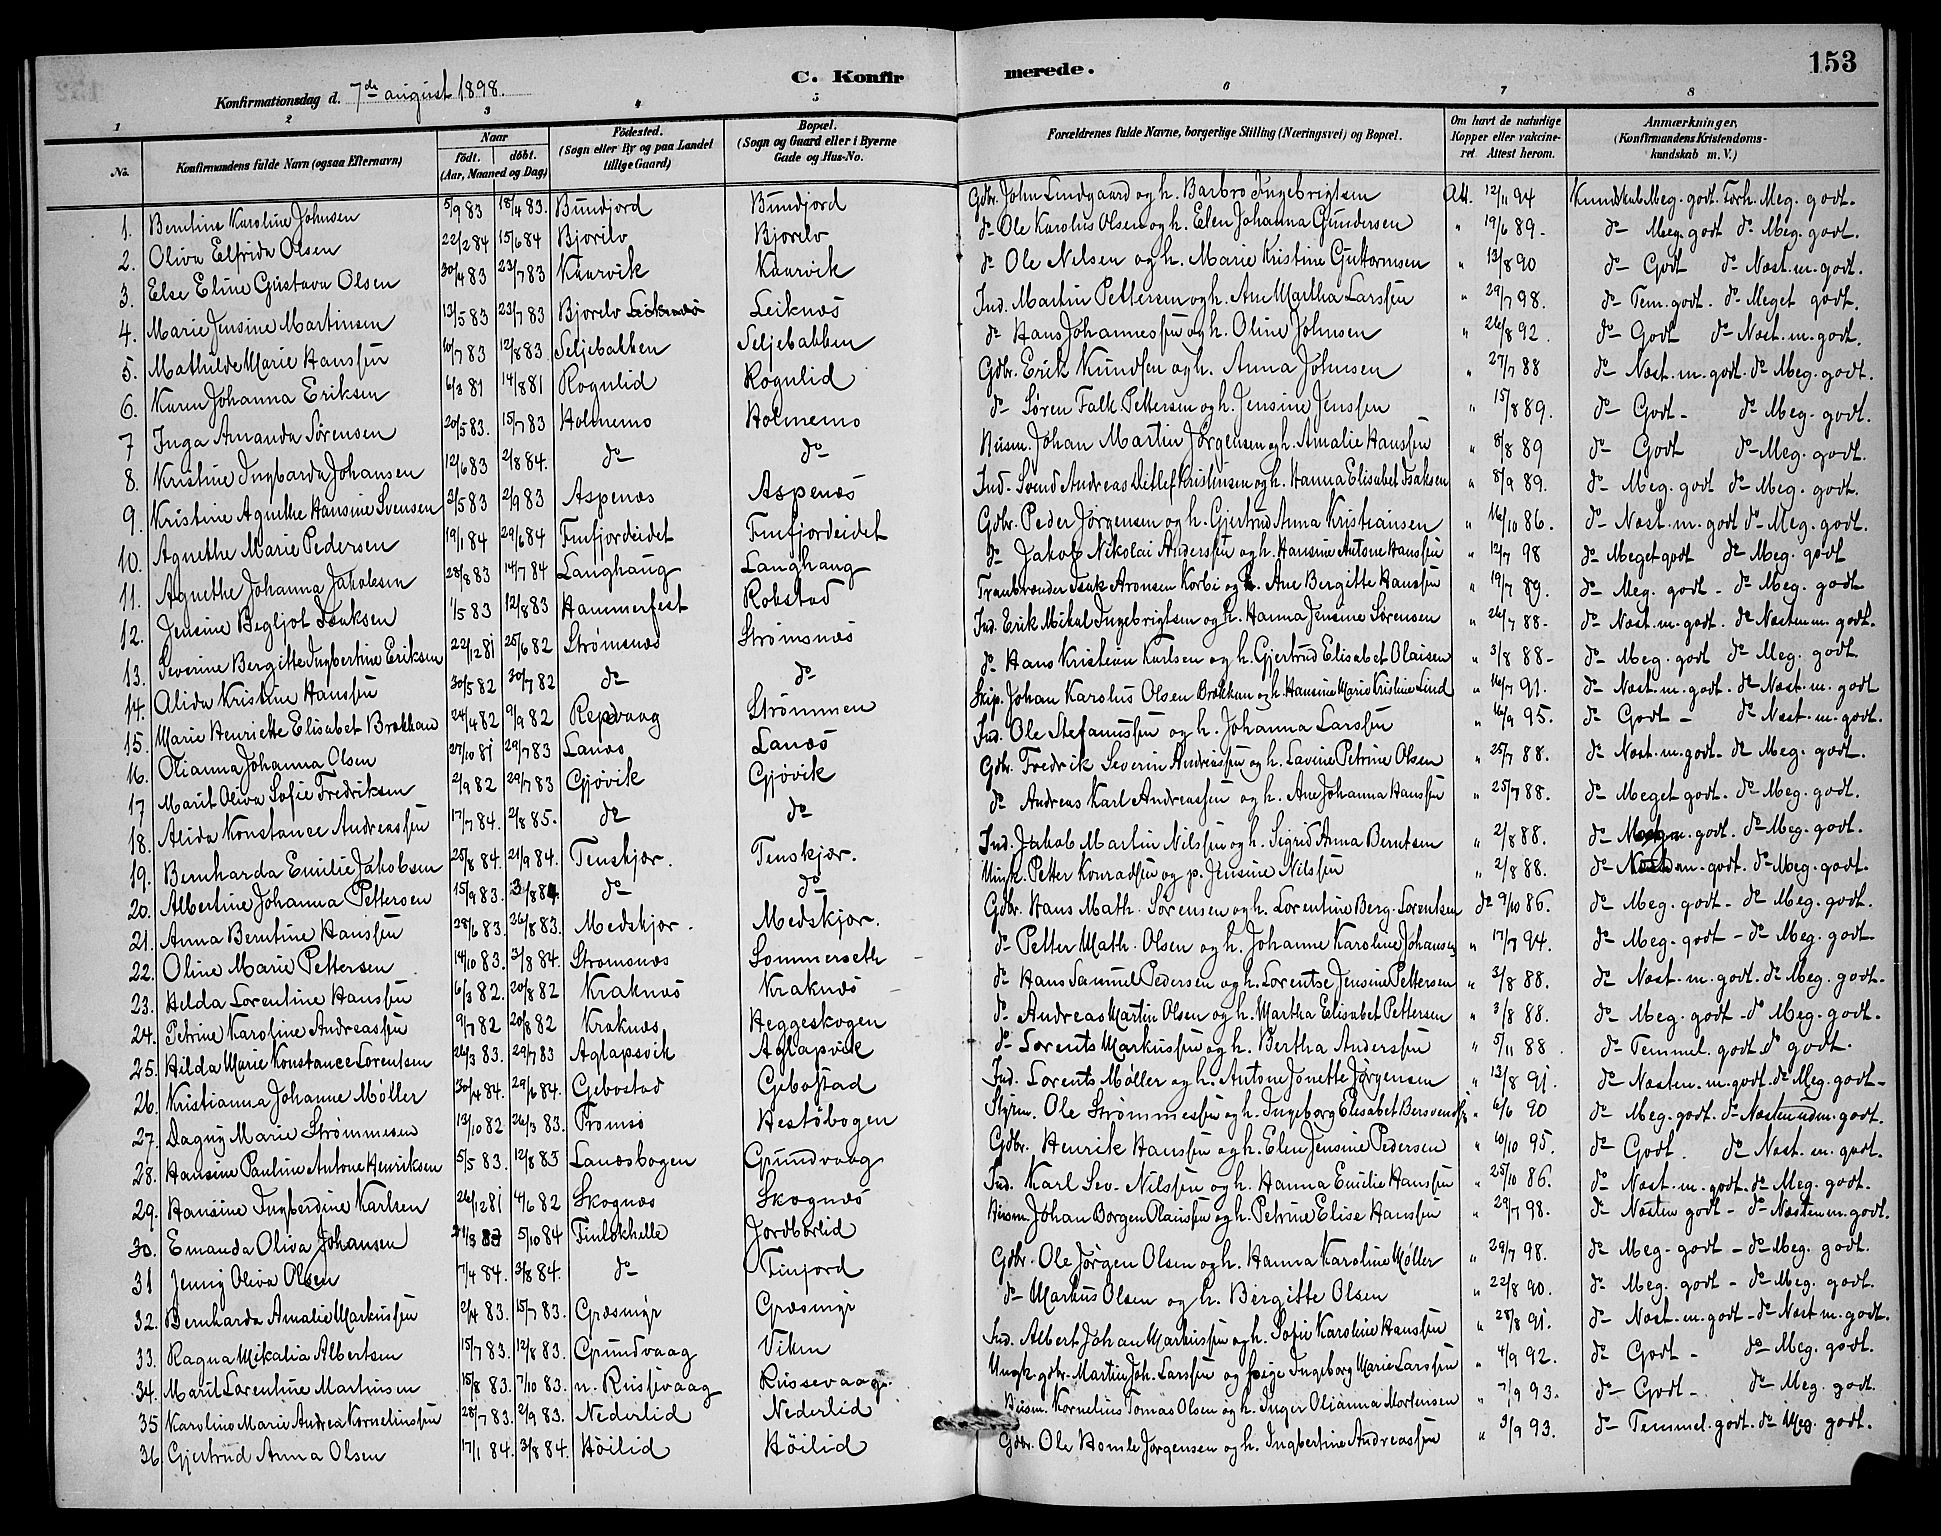 153
C. Konfirmerede.
Konfirmationsdag d. 7de august 1898.
1 2 3 4 5 6 7 8
No. Konfirmandens fulde Navn (ogsaa Efternavn) Naar født. døbt. (Aar, Maaned og Dag) Födested. (Sogn eller By og paa Landet tillige Gaard) Bopæl. (Sogn og Gaard eller i Byerne Gade og Hus-No. Forældrenes fulde Navne, borgerlige Stilling (Næringsvei) og Bopæl. Om havt de naturlige Kopper eller vakcineret. Attest herom. Anmærkninger, (Konfirmandens Kristendomskundskab m. V.)
1. Berntine Karoline Johnsen 5/9 83 18/4 83. Bundjord Bundjord Gdbr. John Lindgaard og h. Barbro Ingebrigtsen Att. 12/11 94 Kundskab Meg. godt. Forh. Meg. godt.
2. Oliva Elfrida Olsen 22/2 84 15/6 84 Bjorelv Bjorelv do Ole Karolius Olsen og h. Elen Johanna Gundersen " 19/6 89 - do Meg. godt do Meg. godt.
3. Else Eline Gustava Olsen 30/4 83 23/7 83 Kaarvik Kaarvik do Ole Nilsen og h. Marie Kristine Guttormsen " 13/8 90 do Godt do Næst. m. godt.
4. Marie Jensine Martinsen 13/5 83 23/7 83 Bjorelv Leiknæs Leiknæs Ind. Martin Pettersen og h. Ane Martha Larssen " 29/7 98. do Tem. godt. do Meget godt.
5. Mathilde Marie Hanssen 10/7 83 12/8 83. Seljebakken Seljebakken do Hans Johannessen og h. Oline Johnsen " 26/8 92. do Godt do Næst. m. godt.
6. Karen Johanna Eriksen 6/3 81 14/8 81 Rognlid Rognlid Gdbr. Erik Knudsen og h. Anna Johnsen " 27/7 88 do Næst. m. godt. do Meg. godt.
7 Inga Amanda Sørensen 20/5 83. 15/7 83 Holmemo Holmemo do Søren Falk Pettersen og h. Jensine Jenssen " 15/8 89. do Godt - do Meg. godt.
8. Kristine Ingbarda Johansen 12/6 83 2/8 84. do do Husm. Johan Martin Jørgensen og h. Amalie Hanssen " 8/8 89 do Godt do Meg. godt.
9. Kristine Agnethe Hansine Svensen 3/5 83 2/9 83 Aspenæs Aspenæs Ind. Svend Andreas Detlef Kristensen og h. Hanna Elisabet Isaksen " 8/9 89. do Meg. godt do Meg. godt.
10. Agnethe Marie Pedersen 19/1 84 29/6 84 Finfjordeidet Finfjordeidet Gdbr. Peder Jørgensen og h. Gjertrud Anna Kristiansen " 16/10 86. do Næst. m. godt do Meg. godt.
11. Agnethe Johanna Jakobsen 28/8 83 14/7 84 Langhaug Langhaug do Jakob Nikolai Anderssen og h. Hansine Antone Hanssen " 12/7 98 do Meget godt do Meg. godt
12. Jensine Begljot Isaksen 1/5 83 12/8 83 Hammerfest Robstad Tranbrænder Isak Aronsen Korbi og h. Ane Bergitte Hanssen " 19/7 89. do Meg. godt - do Meg. godt
13. Severine Bergitte Ingbertine Eriksen 22/12 81 25/6 82 Strømsnæs Strømsnæs Ind. Erik Mikal Ingebrigtsen og h. Hanna Jensine Sørensen " 26/7 88 - do Næst. m. godt. do Næsten m. godt.
14. Alida Kristine Hanssen 30/5 82 30/7 82 do do do Hans Kristian Karlsen og h. Gjertrud Elisabet Olaisen " 3/8 88 - do Meg. godt do Meg. godt.
15. Marie Henriette Elisabet Brækkan 24/4 82 9/9 82 Repvaag Strømmen Skip. Johan Karolius Olsen Brækkan og h. Hansine Marie Kristine Lind " 16/7 91. do Næst. m. godt. do Næst. m. godt
16. Olianna Johanna Olsen 27/10 81 29/7 83 Lanæs Lanæs Ind. Ole Stefanussen og h. Johanna Larssen " 16/9 95. do Godt - do Næst. m. godt.
17 Marit Oliva Sofie Fredriksen 2/9 82 29/7 83 Gjøvik Gjøvik Gdbr. Fredrik Severin Andreassen og h. Lavine Petrine Olsen " 25/7 88. do Næst. m. godt. do Meg. godt.
18. Alida Konstance Andreassen 17/7 84. 2/8 85. do do do Andreas Karl Andreassen og h. Ane Johanna Hanssen " 25/7 88. do Meget godt. do Meg. godt.
19. Bernharda Emilie Jakobsen 25/8 84. 21/9 84. Tenskjær. Tenskjær. Ind. Jakob Martin Nilssen og h. Sigrid Anna Berntsen " 2/8 88. do m. godt. do Meg. godt.
20. Albertine Johanna Pettersen 15/9 83. 3/8 84 do do Ungk. Petter Konradsen og p. Jensine Nilssen " 2/8 88. do m. godt. do Meg. godt.
21. Anna Berntine Hanssen 28/6 83. 26/8 83. Medskjær. Medskjær. Gdbr. Hans Math. Sørensen og h. Lorentine Berg. Lorentsen do 9/10 86. do Meg. godt - do Meg. godt.
22. Oline Marie Pettersen 14/10 83. 3/8 84. Strømsnæs Sommerseth do Petter Math. Olsen og h. Johanne Karoline Johansen " 17/7 94. do Meg. godt - do Meg. godt
23. Helda Lorentine Hanssen 6/3 82. 20/8 82 Kraknæs Kraknæs do Hans Samuel Pedersen og h. Lorentse Jensine Pettersen " 3/8 88. do Næst. m. godt. do Meg. godt.
24. Petrine Karoline Andreassen 9/7 82 20/8 82 Kraknæs Heggeskogen do Andreas Martin Olsen og h. Martha Elisabet Pettersen " 3/8 88. do Meg. godt - do Meg. godt.
25. Hilda Marie Konstance Lorentsen 26/3 83. 29/7 83 Aglapsvik Aglapsvik do Lorents Markussen og h. Bertha Anderssen " 5/11 88. do Temmel. godt do godt.
26. Kristianna Johanne Møller 30/4 84. 29/6 84. Gebostad Gebostad Ind. Lorents Møller og h. Antone Jonette Jørgensen " 13/8 91. do Næsten. m. godt. do Meg. godt.
27. Dagny Marie Strømmesen 13/10 82 26/3 83. Tromsø Hestøbogen Styrm. Ole Strømmessen og h. Ingeborg Elisabet " 6/6 90 do Meg. godt. do Næsten udm. godt.
28. Hansine Pauline Antone Henriksen 5/5 83. 12/8 83 Lanæsbogen Grundvaag Gdbr. Henrik Hanssen og h. Elen Jensine Pedersen " 10/10 95. do Godt. do Næst. m. godt.
29. Hansine Ingberdine Karlsen 26/12 81 4/6 82 Skognæs Skognæs Ind. Karl Sev. Nilssen og h. Hanna Emilie Hanssen " 25/10 86. do Næst. m. godt. do Meg. godt.
30. Emanda Oliva Johansen 3 83 5/10 84 Finlokhelle Jordbørlid Husm. Johan Borgen Olaissen og h. Petrine Elise Hanssen " 29/7 98. do Næsten godt - do Næsten m. godt.
31 Jenny Oliva Olsen 7/4 84. 3/8 84. do Finjord Gdbr. Ole Jørgen Olsen og h. Hanna Karoline Møller " 29/7 98. do Meg. godt - do Meg. godt.
32. Bernharda Amalie Markussen 2/4 83. 15/7 83. Græsmyr Græsmyr do Markus Olsen og h. Bergitte Olsen " 22/8 90. do Meg. godt - do Meg. godt.
33. Ragna Mikalia Albertsen 15/7 83. 12/8 83. Grundvaag Viken Ind. Albert Johan Markussen og h. Sofie Karoline Hanssen " 28/8 91. do Næst. m. godt - do Næst m. godt.
34. Marit Lorentine Martinsen 15/8 83. 7/10 83. n. Russevaag Russevaag. Ungk. gdbr. Martin Joh. Larssen og pige Ingeborg Marie Larssen " 4/9 92. do Godt - do Meg. godt.
35 Karoline Marie Andrea Korneliussen 28/7 83. 2/9 83. Nederlid Nederlid Husm. Kornelius Tomas Olsen og h. Inger Olianna Mortensen " 7/9 93. do Godt - do Meg. godt
36. Gjertrud Anna Olsen 17/1 84. 3/8 84. Høilid Høilid Gdbr. Ole Homle Jørgensen og h. Ingbertine Andreassen " 3/9 93. do Temmel. godt. do Meg. godt.